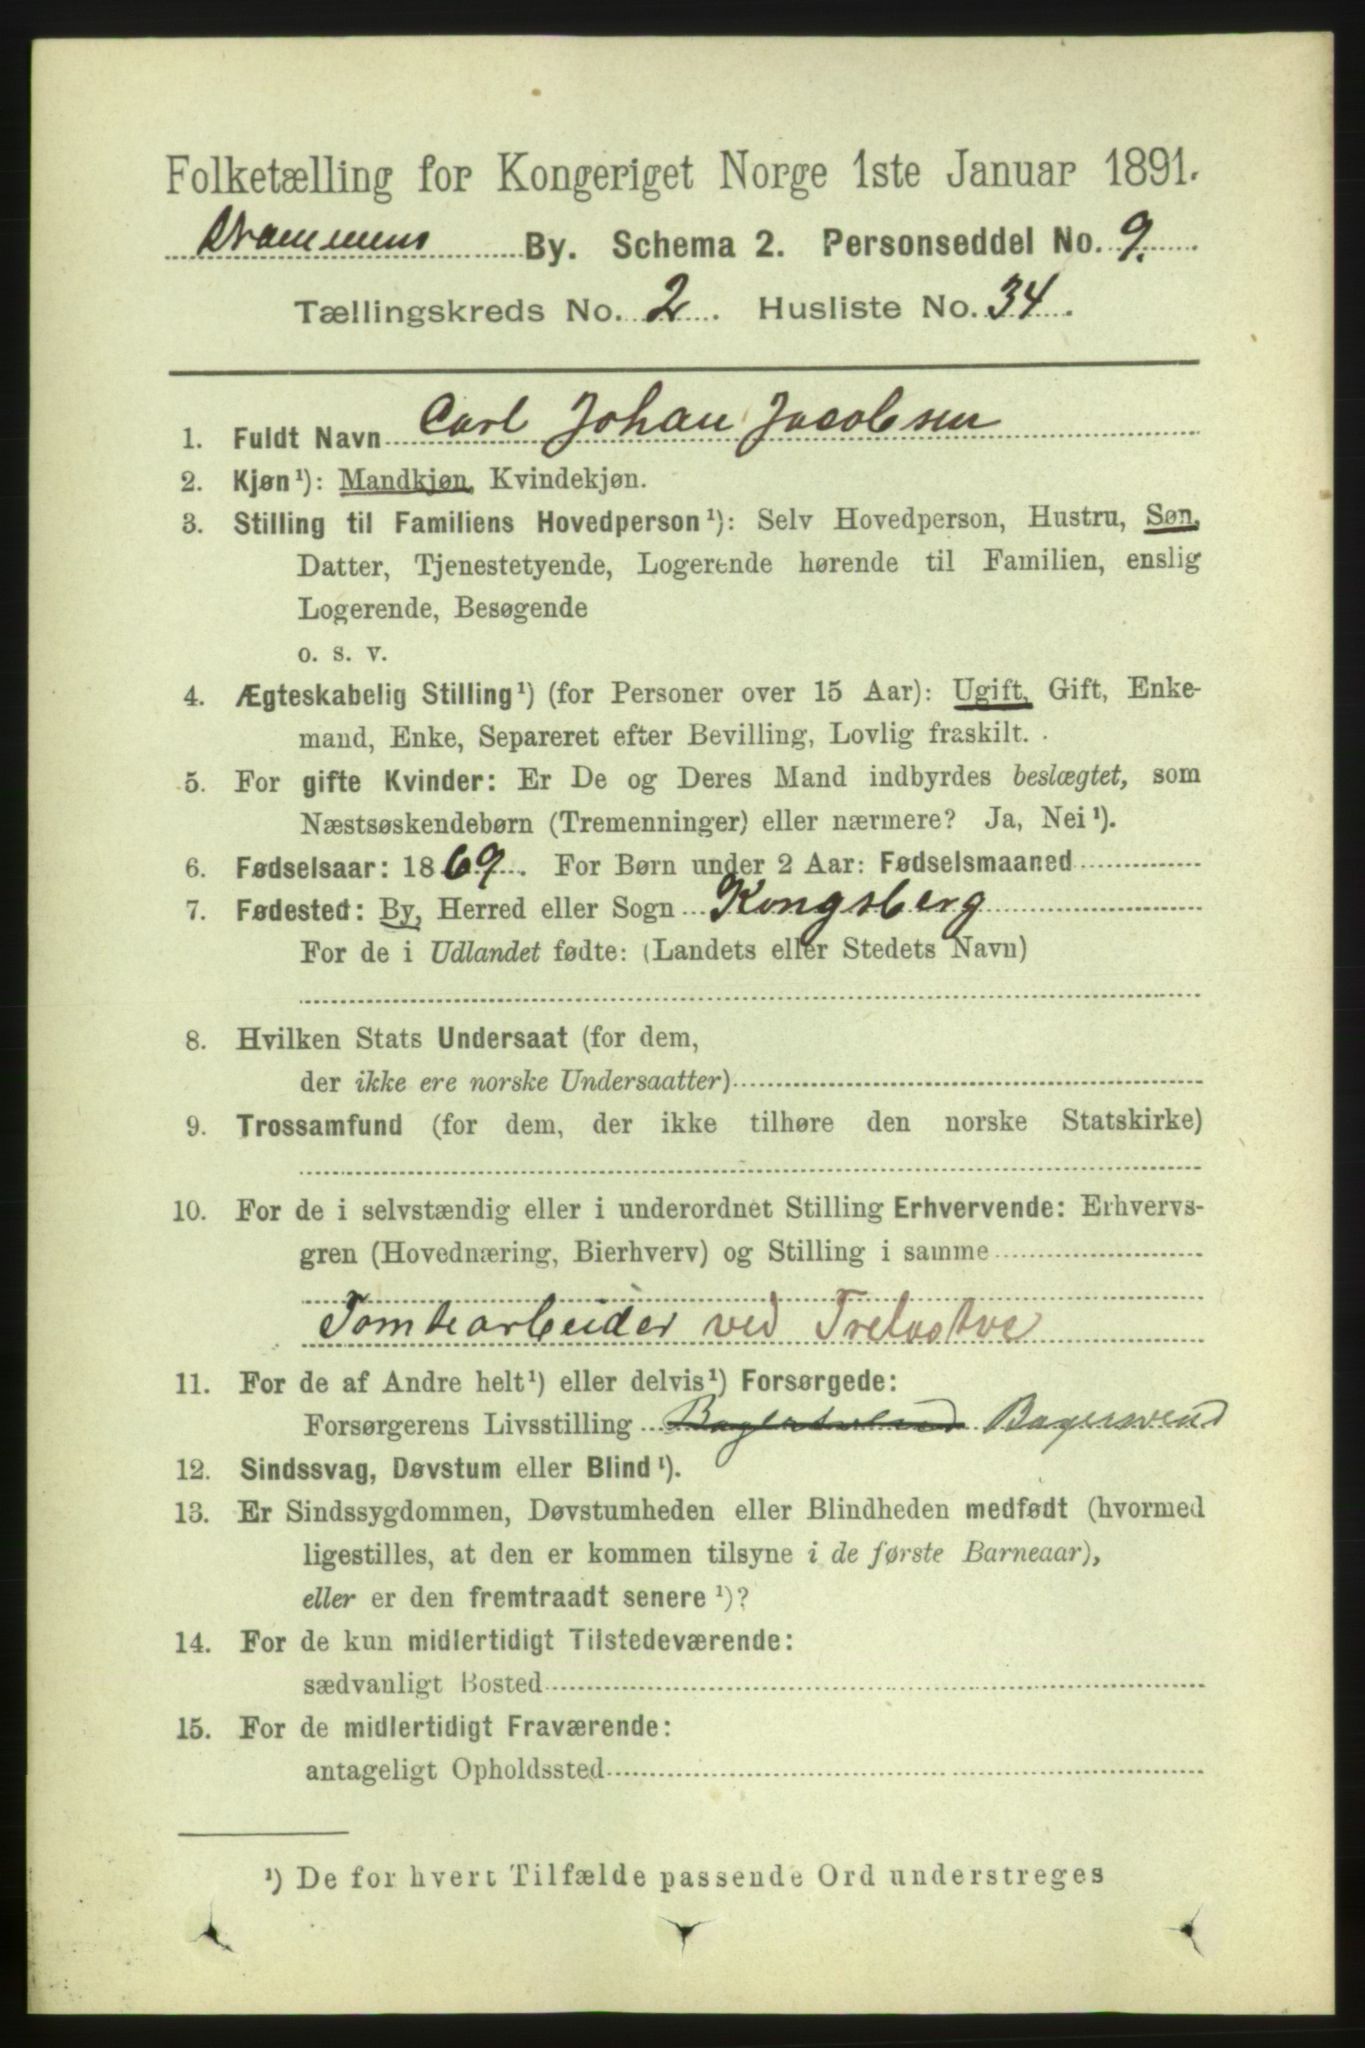 Folketælling for Kongeriget Norge 1ste Januar 1891.
Drammens By. Schema 2. Personseddel No. 9.
Tællingskreds No. 2. Husliste No. 34.
1. Fuldt Navn Carl Johan Jacobsen
2. Kjøn¹): Mandkjøn, Kvindekjøn.
3. Stilling til Familiens Hovedperson¹): Selv Hovedperson, Hustru, Søn,
Datter, Tjenestetyende, Logerende hørende til Familien, enslig
Logerende, Besøgende
o. s. v.
4. Ægteskabelig Stilling¹) (for Personer over 15 Aar): Ugift, Gift, Enke-
mand, Enke, Separeret efter Bevilling, Lovlig fraskilt.
5. For gifte Kvinder: Er De og Deres Mand indbyrdes beslægtet, som
Næstsøskendebørn (Tremenninger) eller nærmere? Ja, Nei¹).
6. Fødselsaar: 1869. For Børn under 2 Aar: Fødselsmaaned
7. Fødested: By, Herred eller Sogn Kongsberg
For de i Udlandet fødte: (Landets eller Stedets Navn)
8. Hvilken Stats Undersaat (for dem,
der ikke ere norske Undersaatter)
9. Trossamfund (for dem, der ikke tilhøre den norske Statskirke)
10. For de i selvstændig eller i underordnet Stilling Erhvervende: Erhvervs-
gren (Hovednæring, Bierhverv) og Stilling i samme
Tomtearbeider ved Trelastve
11. For de af Andre helt¹) eller delvis¹) Forsørgede:
Forsørgerens Livsstilling Bagersvend Bagersvend
12. Sindssvag, Døvstum eller Blind¹).
13. Er Sindssygdommen, Døvstumheden eller Blindheden medfødt (hvormed
ligestilles, at den er kommen tilsyne i de første Barneaar),
eller er den fremtraadt senere¹)?
14. For de kun midlertidigt Tilstedeværende:
sædvanligt Bosted
15. For de midlertidigt Fraværende:
antageligt Opholdssted
¹) De for hvert Tilfælde passende Ord understreges